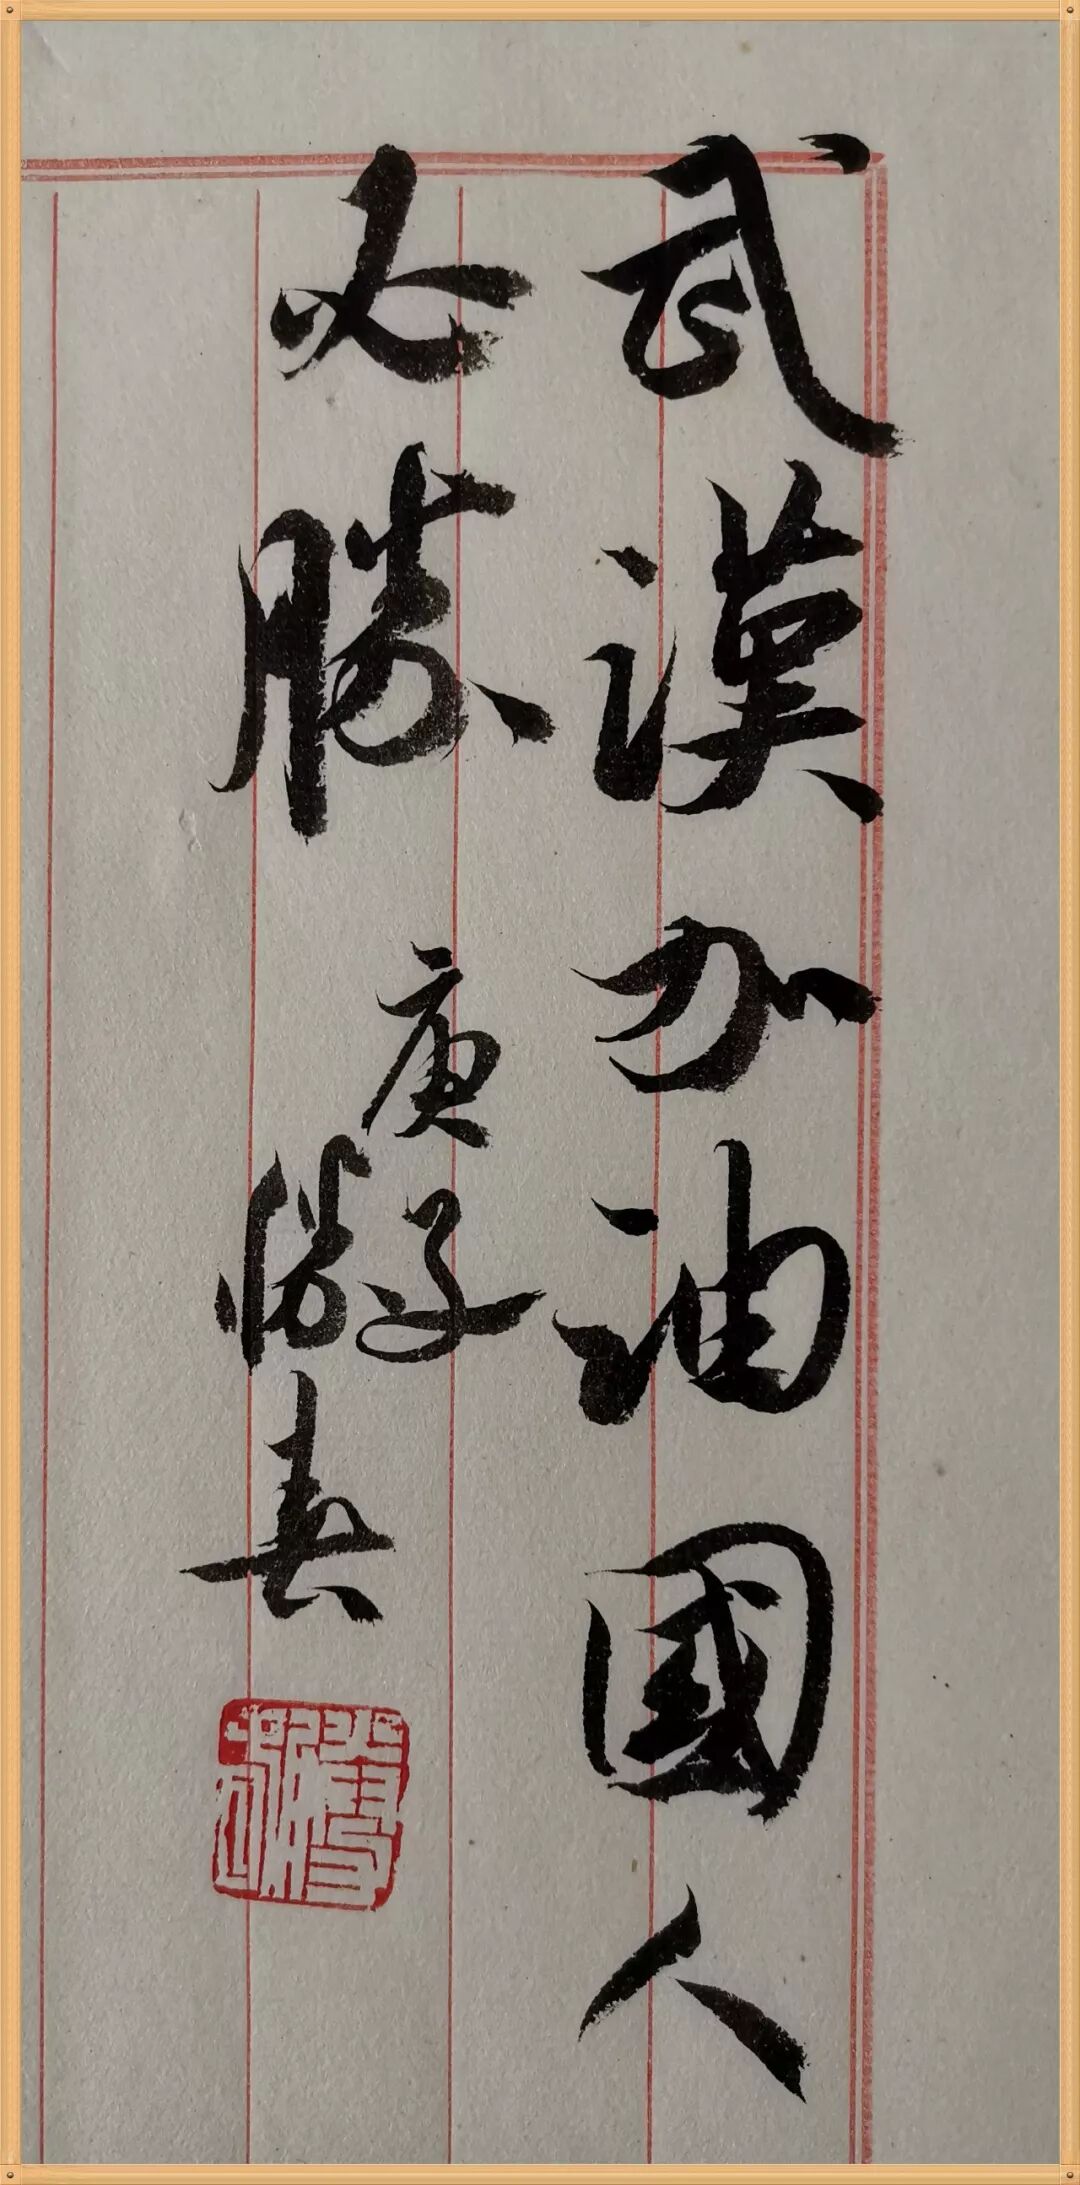 武漢加油國人
必勝
庚子
春